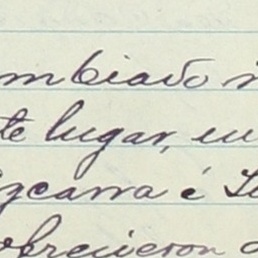 mbiado
te lugar, en
zcarra é
ofrecieron